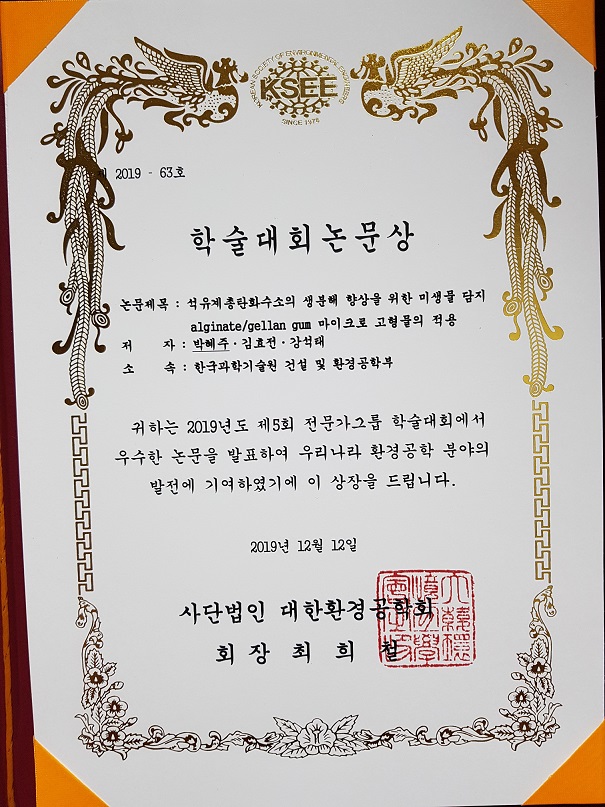 KOREAN SOCIETY OF ENVIRONMENTAL ENGINEERS
KSEE
SINCE 1978
제 2019 - 63호
학술대회논문상
논문제목 : 석유계총탄화수소의 생분해 향상을 위한 미생물 담지
alginate/gellan gum 마이크로 고형물의 적용
저 자 : 박혜주·김효전·강석태
소 속 : 한국과학기술원 건설 및 환경공학부
귀하는 2019년도 제5회 전문가그룹 학술대회에서
우수한 논문을 발표하여 우리나라 환경공학 분야의
발전에 기여하였기에 이 상장을 드립니다.
2019년 12월 12일
사단법인 대한환경공학회
회장 최 희 철